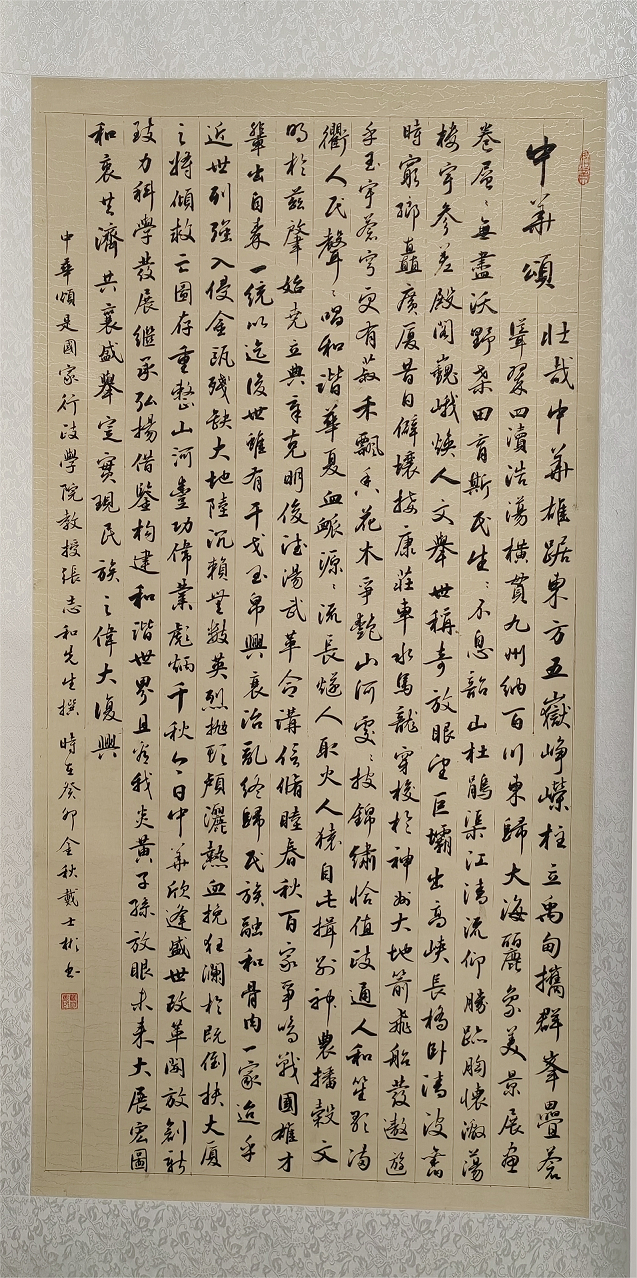 中華頌
壯哉中華雄踞東方五嶽崢嶸柱立禹甸攜群峯疊蒼
聳翠四瀆浩蕩橫貫九州納百川東歸大海麗象美景展畫
卷層〻無盡沃野桑田育斯民生〻不息韶山杜鵑渠江清流仰勝跡胸懷激蕩
樓宇參差殿閣巍峨煥人文舉世稱奇放眼望巨壩出高峽長橋臥清波舊
時窮鄉矗廣廈昔日僻壤接康莊車水馬龍穿梭於神州大地箭飛船發遨遊
乎玉宇蒼穹更有菽禾飄香花木爭艷山河處〻披錦繡恰值政通人和笙歌滿
衢人民聲〻唱和諧華夏血脈源〻流長燧人取火人猿自此揖別神農播穀文
明於茲肇始堯立典章克明俊德湯武革命講信脩睦春秋百家爭鳴戰國雄才
輩出自秦一統以迄後世雖有干戈玉帛興衰治亂終歸民族融和骨肉一家迨乎
近世列強入侵金甌殘缺大地陸沉賴無數英烈拋頭顱灑熱血挽狂瀾於既倒扶大廈
之將傾救亡圖存重整山河豐功偉業彪炳千秋今日中華欣逢盛世改革開放創新
致力科學發展繼承弘揚借鑒構建和諧世界且看我炎黃子孫放眼未來大展宏圖
和衷共濟共襄盛舉定實現民族之偉大復興
中華頌是國家行政學院教授張志和先生撰時在癸卯金秋戴士彬書